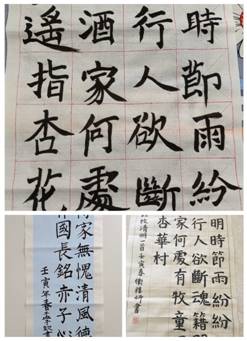 時節雨紛
行人欲斷
酒家何處
遙指杏花
家無愧清風德
國長銘赤子心
壬寅年春
明時節雨紛
行人欲斷魂籍
家何處有牧童
杏華村
牧清明一首壬寅春
書